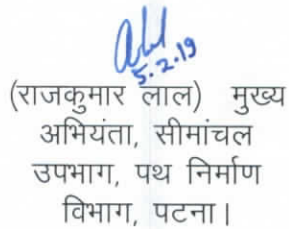 5.2.19
(राजकुमार लाल) मुख्य
अभियंता, सीमांचल
उपभाग, पथ निर्माण
विभाग, पटना।